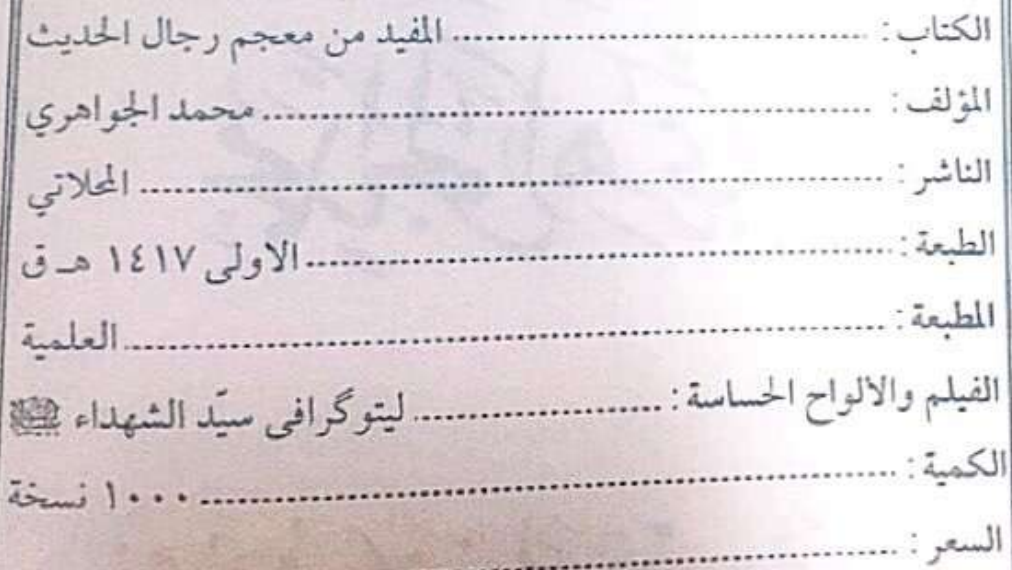 الكتاب : ........................................ المفيد من معجم رجال الحديث
المؤلف : ........................................ محمد الجواهري
الناشر : ........................................ المحلاتي
الطبعة : ........................................ الاولى ١٤١٧ هـ ق
المطبعة : ........................................ العلمية
الفيلم والالواح الحساسة : ........................................ ليتوگرافى سيّد الشهداء
الكمية : ........................................ ١٠٠٠ نسخة
السعر : ........................................